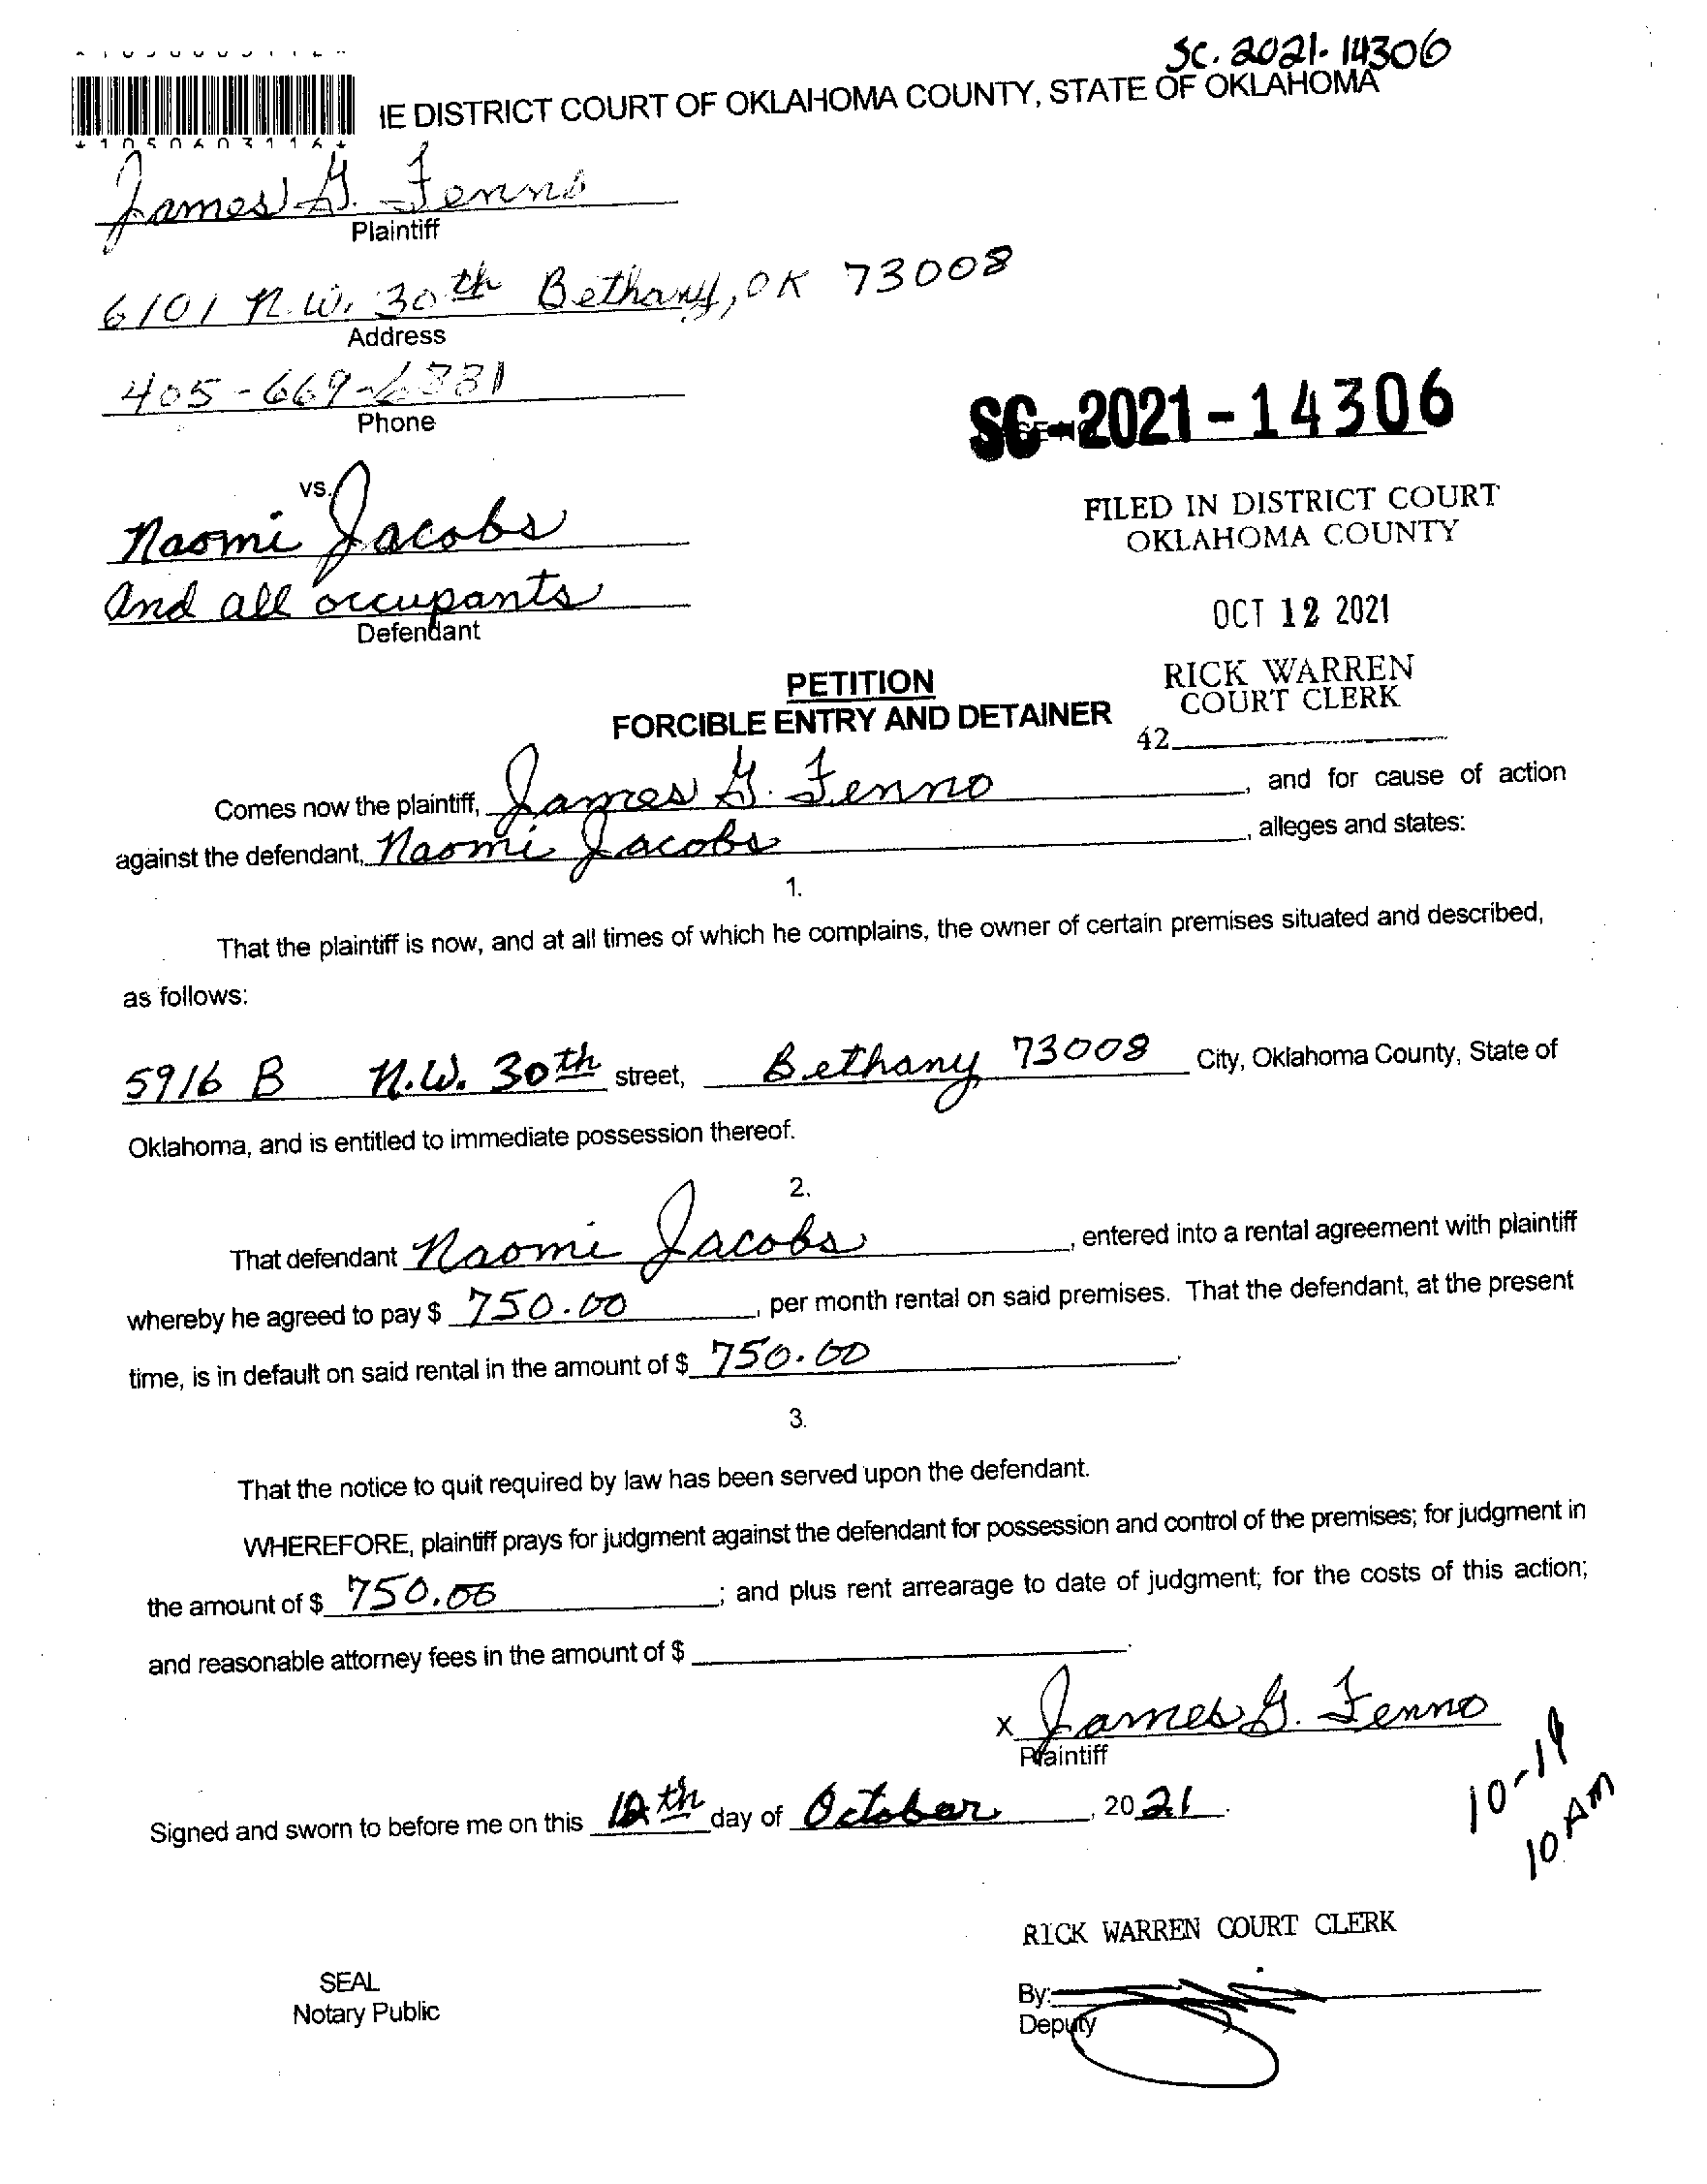 SC. 2021-14306
IE DISTRICT COURT OF OKLAHOMA COUNTY, STATE OF OKLAHOMA
*1050603116*
James G. Fenno
Plaintiff
6101 N.W. 30th Bethany, OK 73008
Address
405-669-
Phone
SC-2021-14306
vs.
Naomi Jacobs
And all occupants
Defendant
FILED IN DISTRICT COURT
OKLAHOMA COUNTY
OCT 12 2021
RICK WARREN
COURT CLERK
42
PETITION
FORCIBLE ENTRY AND DETAINER
Comes now the plaintiff, James G. Fenno, and for cause of action
against the defendant, Naomi Jacobs, alleges and states:
1.
That the plaintiff is now, and at all times of which he complains, the owner of certain premises situated and described,
as follows:
5916 B N.W. 30th street, Bethany 73008 City, Oklahoma County, State of
Oklahoma, and is entitled to immediate possession thereof.
2.
That defendant Naomi Jacobs, entered into a rental agreement with plaintiff
whereby he agreed to pay $ 750.00, per month rental on said premises. That the defendant, at the present
time, is in default on said rental in the amount of $ 750.00.
3.
That the notice to quit required by law has been served upon the defendant.
WHEREFORE, plaintiff prays for judgment against the defendant for possession and control of the premises; for judgment in
the amount of $ 750.00; and plus rent arrearage to date of judgment; for the costs of this action;
and reasonable attorney fees in the amount of $
x James G. Fenno
Plaintiff
10-19
10 AM
Signed and sworn to before me on this 12th day of October, 2021.
RICK WARREN COURT CLERK
SEAL
Notary Public
By:
Deputy